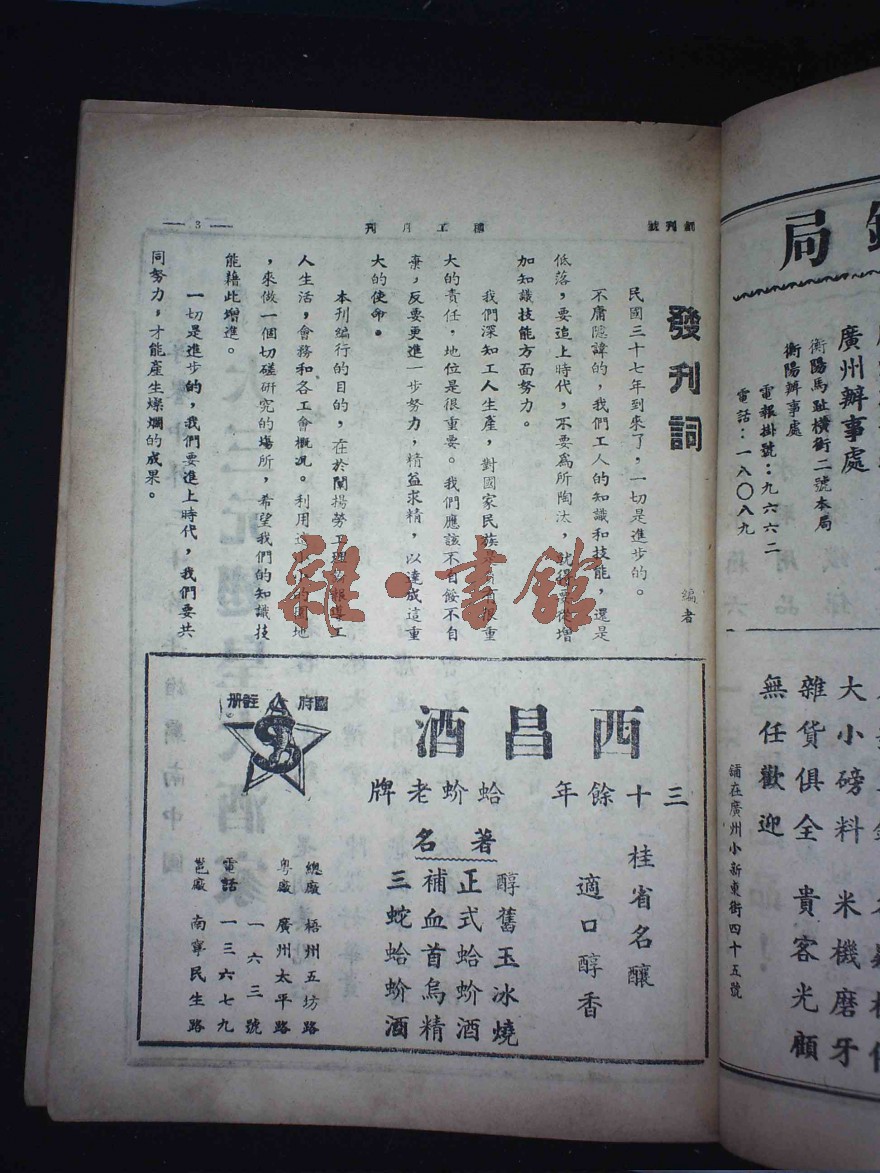 創刊號
工月刊
3
發刊詞
編者
民國三十七年到來了，一切是進步的。
不庸隱諱的，我們工人的知識和技能，還是
低落，要追上時代，不要為所陶汰，就得要從增
加知識技能方面努力。
我們深知工人生產，對國家民族是負有很重
大的責任，地位是很重要。我們應該不自餒不自
棄，反要更進一步努力，精益求精，以達成這重
大的使命。
本刊編行的目的，在於闡揚勞工理論報導工
人生活，會務和各工會概况。利用這小小的園地
，來做一個切磋研究的塲所，希望我們的知識技
能藉此增進。
一切是進步的，我們要進上時代，我們要共
同努力，才能產生燦爛的成果。
雜·書館
西昌酒
三十餘年
蛤蚧老牌
國府註册
桂省名釀
適口醇香
著名
醇舊玉冰燒
正式蛤蚧酒
補血首烏精
三蛇蛤蚧酒
總廠 梧州五坊路
一六三號
粵廠 廣州太平路
電話 一三六七九
邕廠 南寧民生路
局
廣州辦事處
衡陽馬趾橫街二號本局
衡陽辦事處
電報掛號：九六六二
電話：一八〇八九
大小磅料 米機磨牙
雜貨俱全 貴客光顧
無任歡迎
鋪在廣州小新東街四十五號